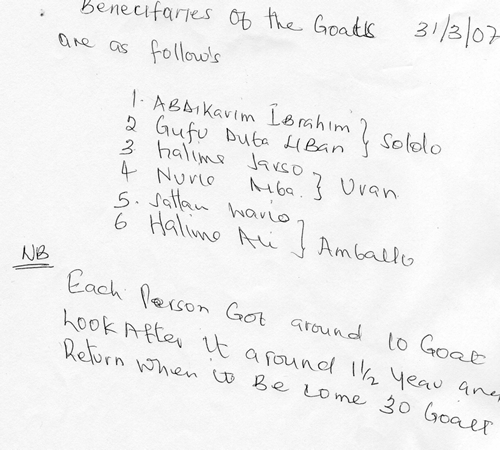 Benecifaries of the Goats 31/3/07
are as follow's
1. ABDIKarim IBrahim } Sololo
2 Gufu Duba LIBan
3. Halima Jarso } Uran
4 Nuria
5. Wario } Amballo
6 Halima Ali
NB
Each Person Got around 10 Goat
Look After it around 1 1/2 Year and
Return when it Be come 30 Goats